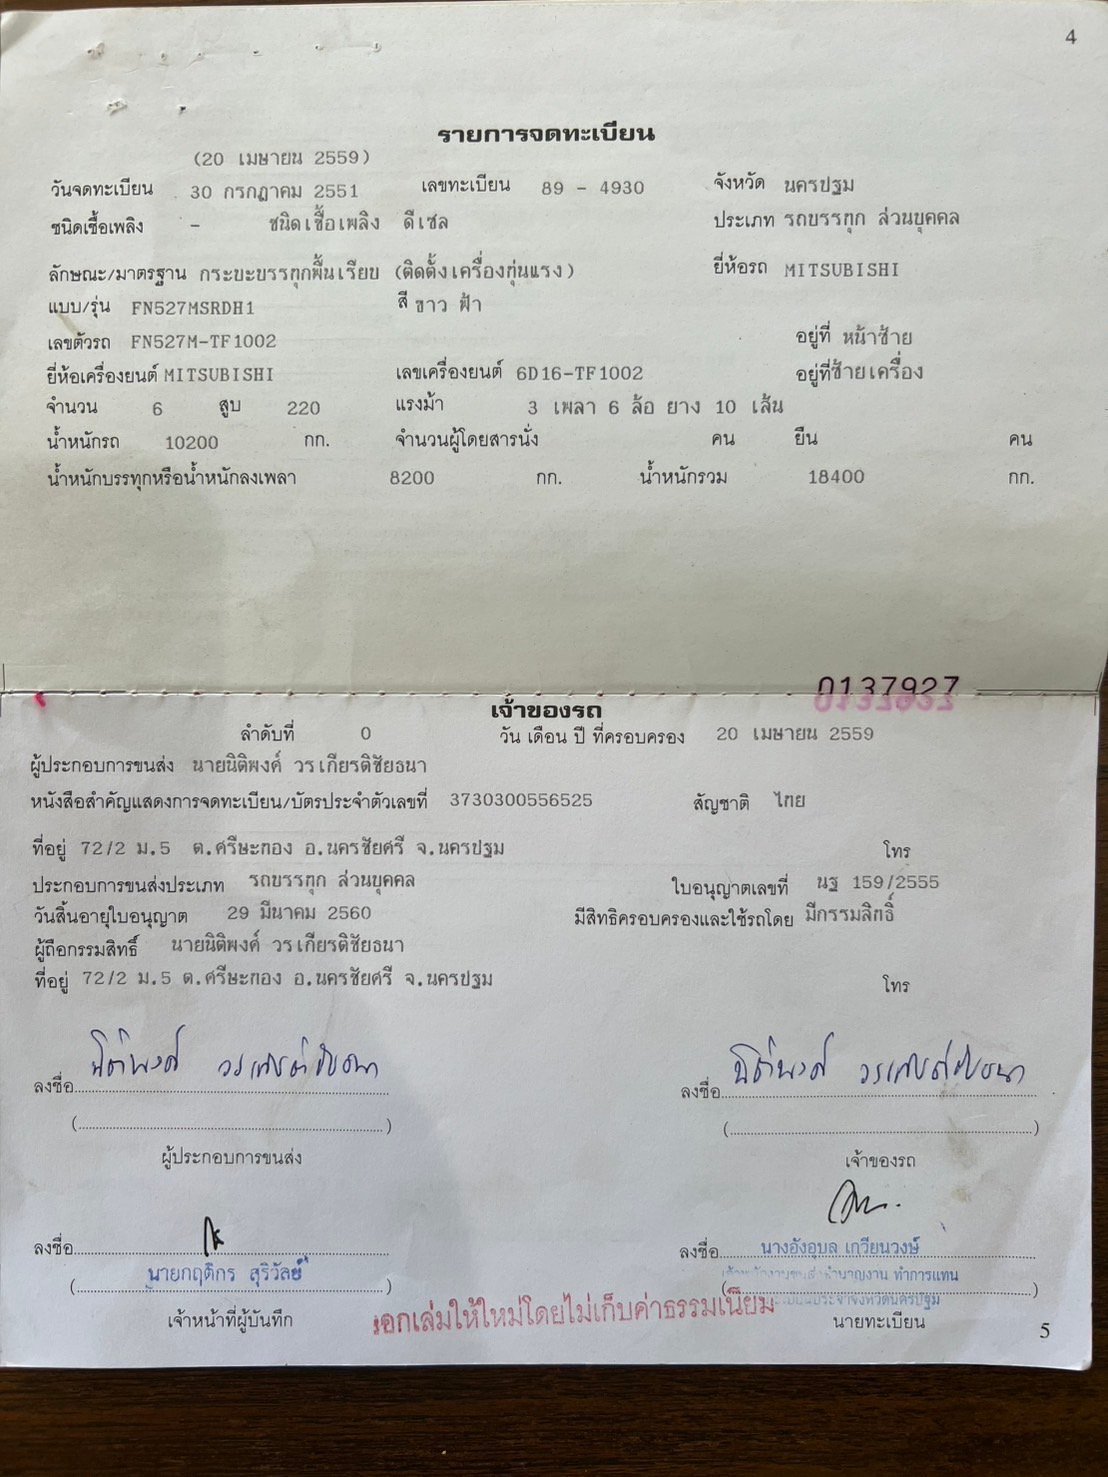 4
รายการจดทะเบียน
(20 เมษายน 2559)
วันจดทะเบียน 30 กรกฎาคม 2551 เลขทะเบียน 89 - 4930 จังหวัด นครปฐม
ชนิดเชื้อเพลิง - ชนิดเชื้อเพลิง ดีเซล ประเภท รถบรรทุก ส่วนบุคคล
ลักษณะ/มาตรฐาน กระบะบรรทุกพื้นเรียบ (ติดตั้งเครื่องทุ่นแรง) ยี่ห้อรถ MITSUBISHI
แบบ/รุ่น FN527MSRDH1 สี ขาว ฟ้า
เลขตัวรถ FN527M-TF1002 อยู่ที่ หน้าซ้าย
ยี่ห้อเครื่องยนต์ MITSUBISHI เลขเครื่องยนต์ 6D16-TF1002 อยู่ที่ซ้ายเครื่อง
จำนวน 6 สูบ 220 แรงม้า 3 เพลา 6 ล้อ ยาง 10 เส้น
น้ำหนักรถ 10200 กก. จำนวนผู้โดยสารนั่ง คน ยืน คน
น้ำหนักบรรทุกหรือน้ำหนักลงเพลา 8200 กก. น้ำหนักรวม 18400 กก.
0137927
เจ้าของรถ
ลำดับที่ 0 วัน เดือน ปี ที่ครอบครอง 20 เมษายน 2559
ผู้ประกอบการขนส่ง นายนิติพงศ์ วรเกียรติชัยธนา
หนังสือสำคัญแสดงการจดทะเบียน/บัตรประจำตัวเลขที่ 3730300556525 สัญชาติ ไทย
ที่อยู่ 72/2 ม.5 ต.ศรีษะทอง อ.นครชัยศรี จ.นครปฐม โทร
ประกอบการขนส่งประเภท รถบรรทุก ส่วนบุคคล ใบอนุญาตเลขที่ นฐ 159/2555
วันสิ้นอายุใบอนุญาต 29 มีนาคม 2560 มีสิทธิครอบครองและใช้รถโดย มีกรรมสิทธิ์
ผู้ถือกรรมสิทธิ์ นายนิติพงศ์ วรเกียรติชัยธนา
ที่อยู่ 72/2 ม.5 ต.ศรีษะทอง อ.นครชัยศรี จ.นครปฐม โทร
ลงชื่อ นิติพงศ์ วรเกียรติชัยธนา ลงชื่อ นิติพงศ์ วรเกียรติชัยธนา
(....................) (....................)
ผู้ประกอบการขนส่ง เจ้าของรถ
ลงชื่อ ลงชื่อ นางอังอุบล เกวียนวงษ์
(นายกฤติกร สุริวัลย์) ชำนาญงาน ทำการแทน
ประจำจังหวัดนครปฐม
เจ้าหน้าที่ผู้บันทึก นายทะเบียน
ออกเล่มให้ใหม่โดยไม่เก็บค่าธรรมเนียม
5